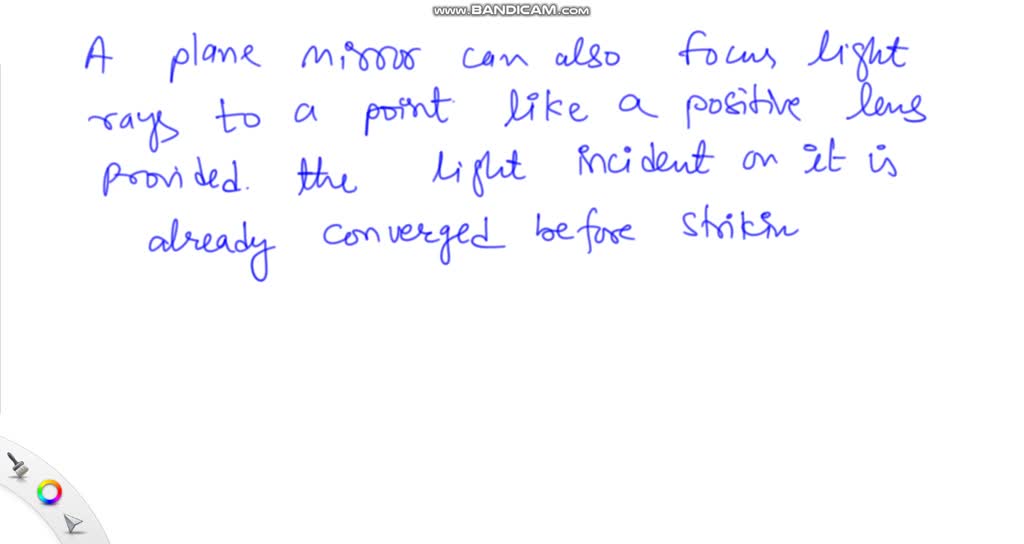 www.BANDICAM.com
A plane mirror can also focus light
rays to a point like a positive lens
provided. the light incident on it is
already converged before strikin